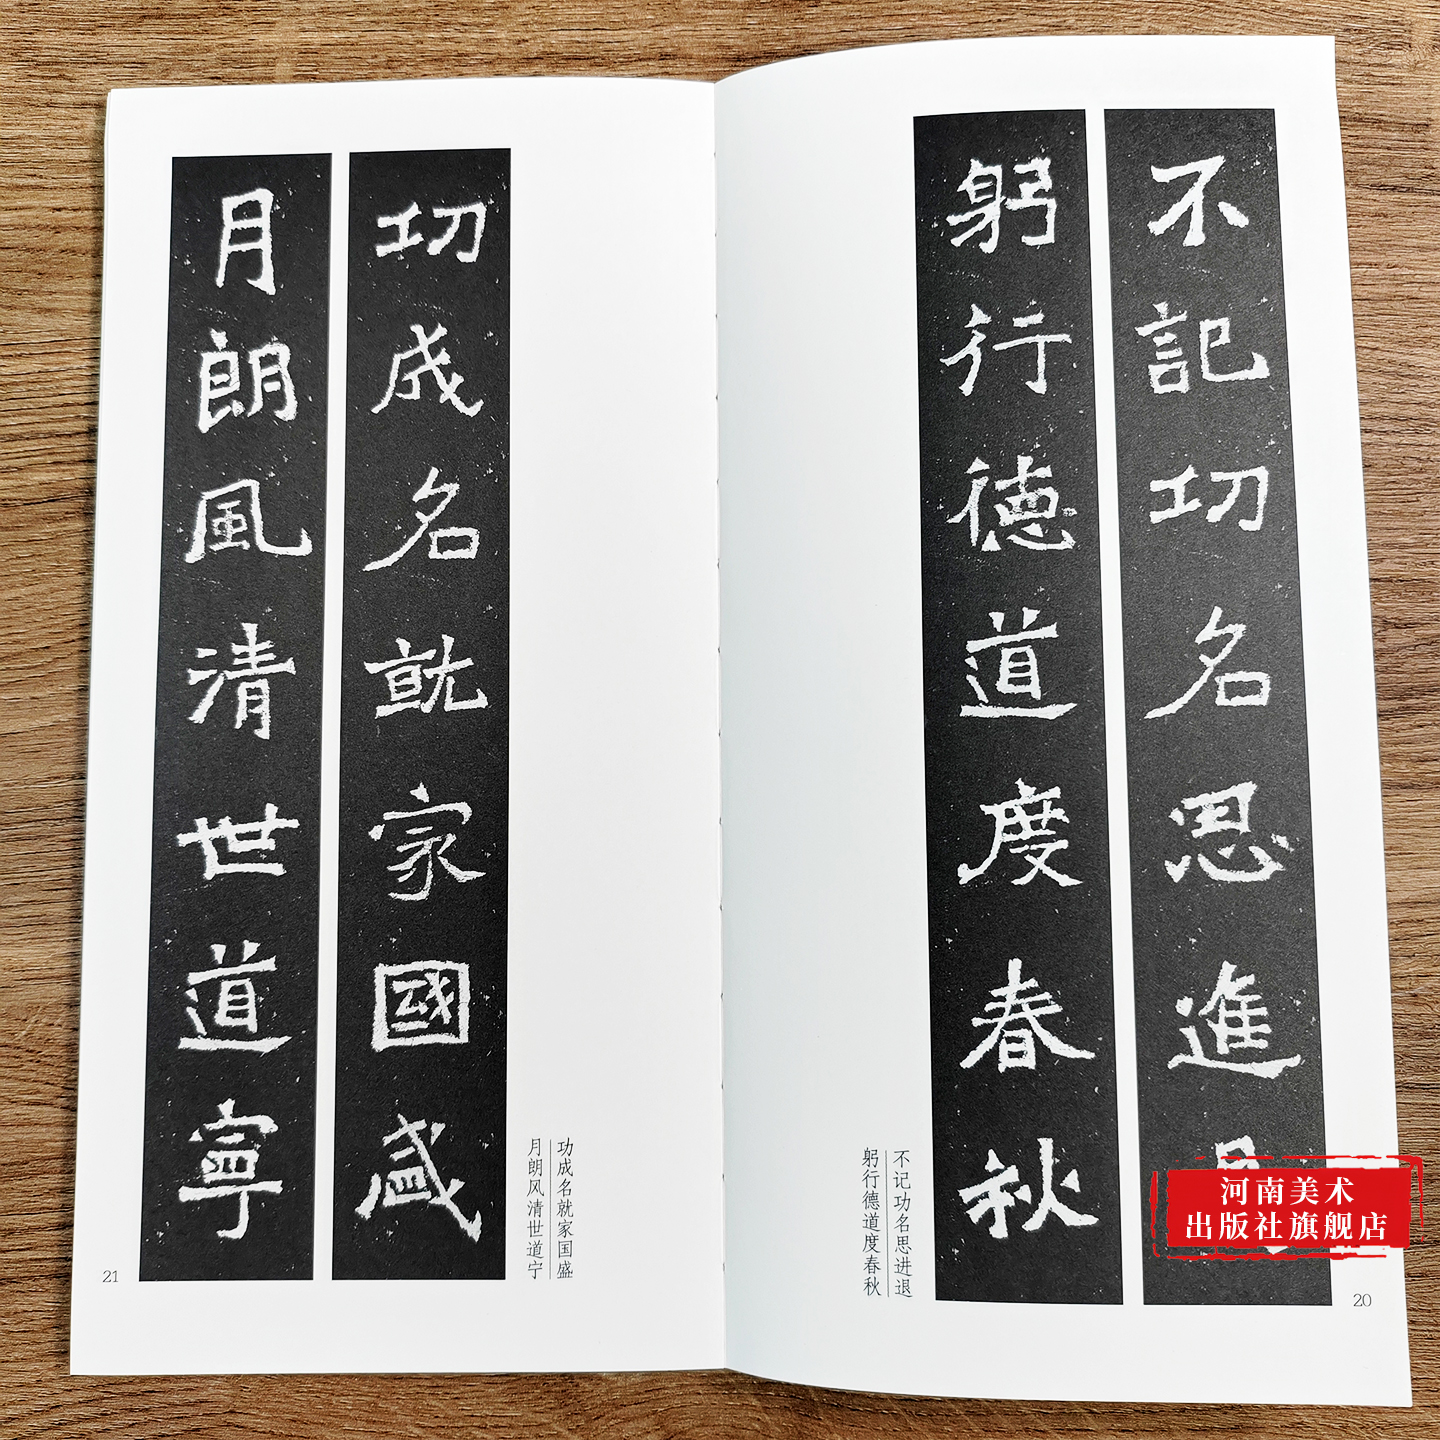 不記功名思進
躬行德道度春秋
不记功名思进退
躬行德道度春秋
20
河南美术
出版社旗舰店
功成名就家國盛
月朗風清世道寧
功成名就家国盛
月朗风清世道宁
21